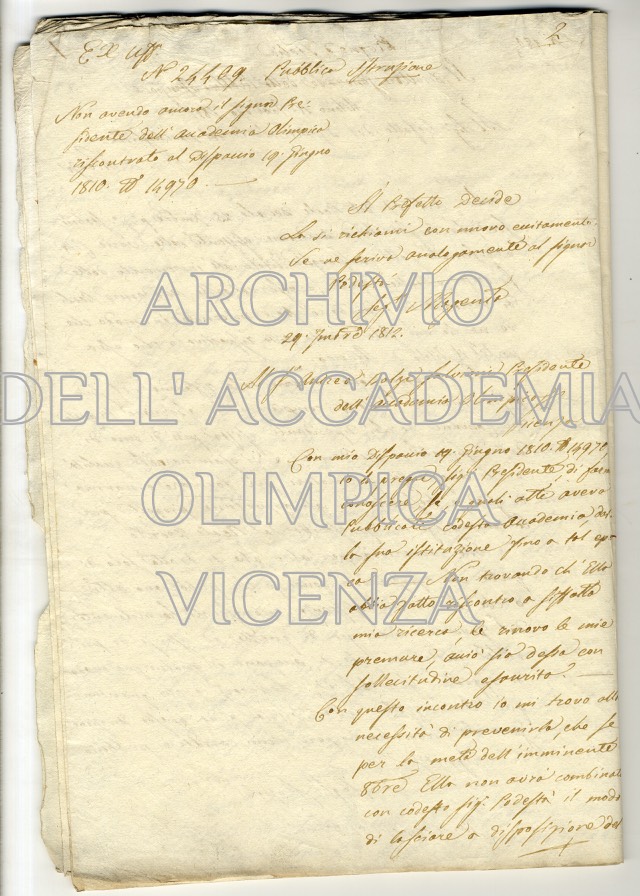 Ex Uff.
N° 24409. Pubblica Istruzione
2
Non avendo ancora il signor Pre=
sidente dell'Accademia Olimpica
riscontrato al Dispaccio 19. Giugno
1810. N° 14970.
Il Prefetto Decide
Lo si richiami con nuovo eccitamento
Se ne scriva analogamente al Signor
Podestà
29. 7mbre 1812.
ARCHIVIO
DELL' ACCADEMIA
OLIMPICA
VICENZA
Al Sigr Andrea Presidente
dell'Accademia Olimpica
Vicenza
Con mio Dispaccio 19. Giugno 1810. N° 14970,
io la pregai Sigr Presidente di farmi
conoscere, se, e quali atti avea
Pubblicati codesta Accademia, dal
la sua istituzione fino a tal epo
ca. Non trovando ch'Ella
abbia fatto riscontro a siffatta
mia ricerca, le rinovo le mie
premure, acciò sia dessa con
sollecitudine esaurita.
Con questo incontro io mi trovo alla
necessità di prevenirla, che se
per la metà dell'imminente
8bre Ella non avrà combinato
con codesto sigr Podestà il modo
di lasciare a disposizione del